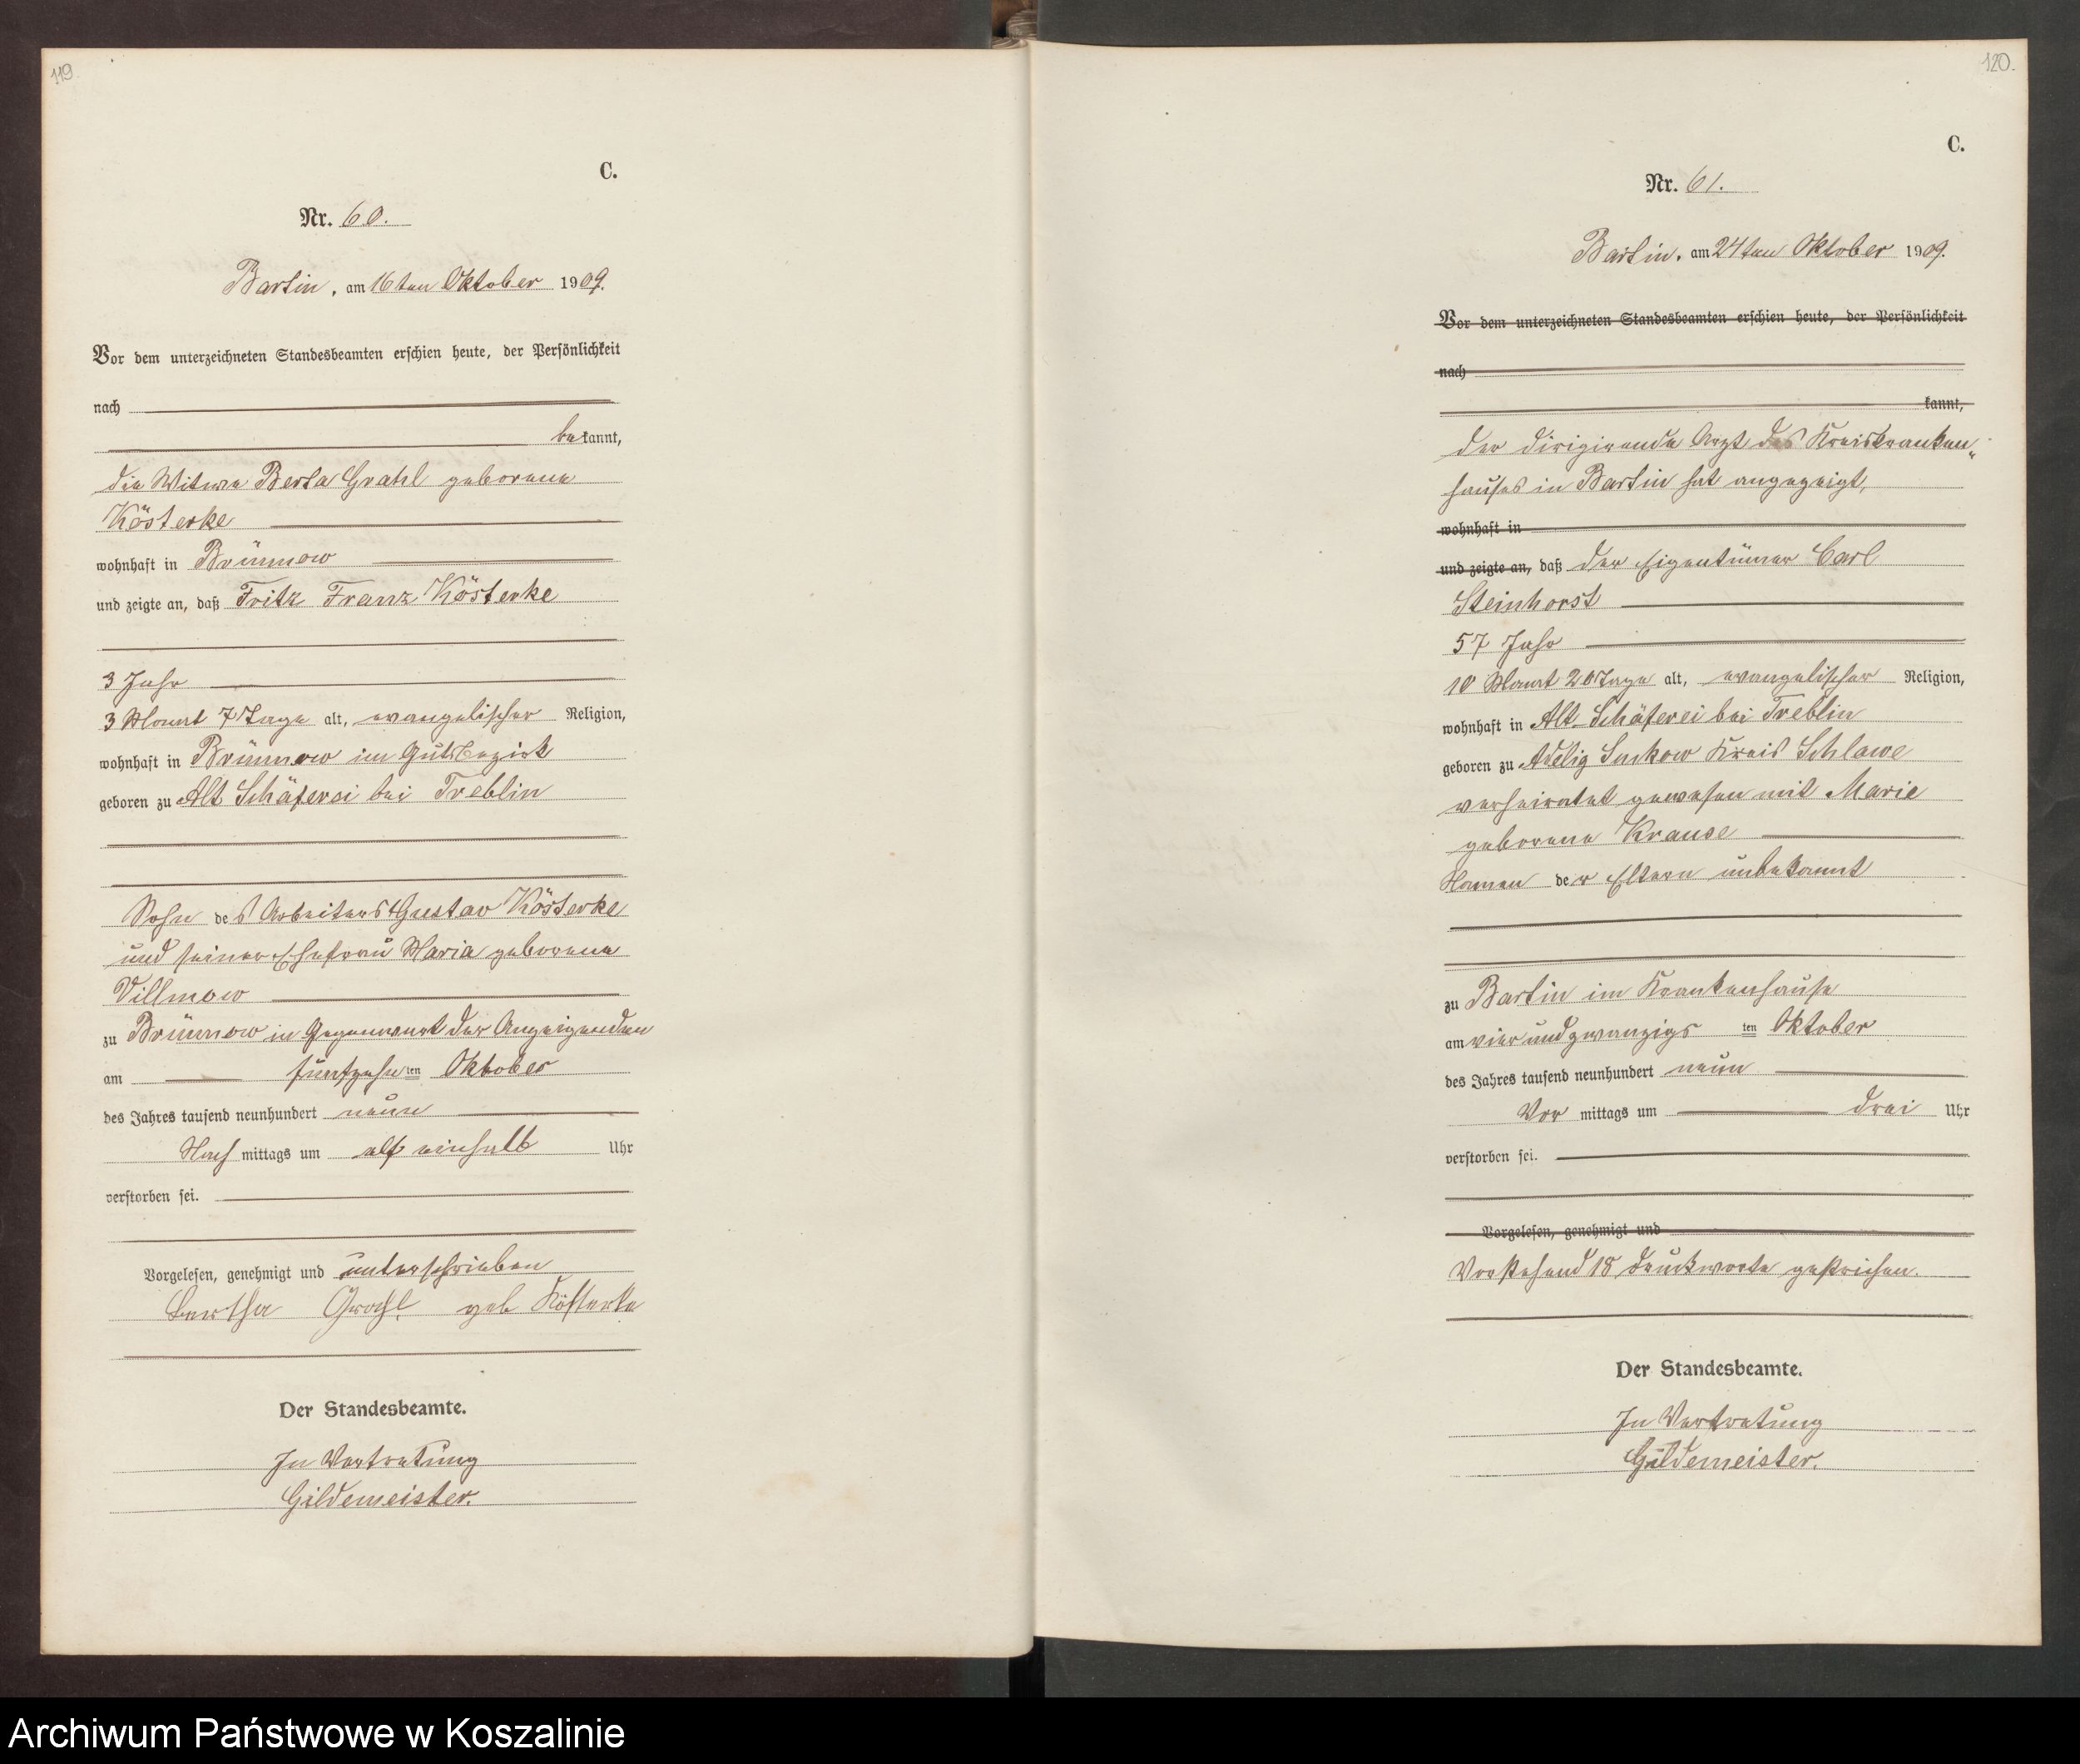 119.
C.
Nr. 60.
Bartin, am 16ten Oktober 1909.
Vor dem unterzeichneten Standesbeamten erschien heute, der Persönlichkeit
nach
bekannt,
die Witwe Berta Grahl geborene
Kösterke
wohnhaft in Brünnow
und zeigte an, daß Fritz Franz Kösterke
3 Jahr
3 Monat 7 Tage alt, evangelischer Religion,
wohnhaft in Brünnow im Gutsbezirk
geboren zu Alt Schäferei bei Treblin
Sohn des Arbeiters Gustav Kösterke
und seiner Ehefrau Maria geborene
Villmow
zu Brünnow in Gegenwart der Anzeigenden
am fünfzehnten Oktober
des Jahres tausend neunhundert neun
Nachmittags um elf einhalb Uhr
verstorben sei.
Vorgelesen, genehmigt und unterschrieben
Bertha Grahl geb Kösterke
Der Standesbeamte.
In Vertretung
Gildemeister.
120.
C.
Nr. 61.
Bartin, am 24ten Oktober 1909.
Vor dem unterzeichneten Standesbeamten erschien heute, der Persönlichkeit
nach
kannt,
der dirigirende Arzt des Kreiskranken„
hauses in Bartin hat angezeigt,
wohnhaft in
und zeigte an, daß der Eigentümer Carl
Steinhorst
57 Jahr
10 Monat 20 Tage alt, evangelischer Religion,
wohnhaft in Alt Schäferei bei Treblin
geboren zu Adelig Suckow Kreis Schlawe
verheiratet gewesen mit Marie
geborene Krause
Namen der Eltern unbekannt
zu Bartin im Krankenhause
am vierundzwanzigsten Oktober
des Jahres tausend neunhundert neun
Vormittags um drei Uhr
verstorben sei.
Vorgelesen, genehmigt und
Vorstehend 18 Druckworte gestrichen.
Der Standesbeamte.
In Vertretung
Gildemeister.
Archiwum Państwowe w Koszalinie